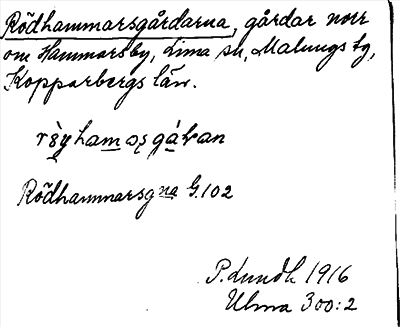 Rödhammarsgårdarna, gårdar norr
om Hammarsby, Lima sn, Malungs tg,
Kopparbergs län.
Rödhammarsgna G.102
P. Lundh 1916
Ulma 300:2